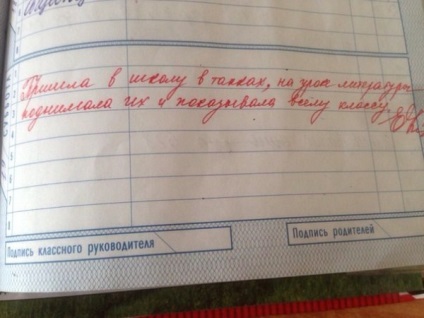 Пришла в школу в тапках, на уроке литературы
поднимала их и показывала всему классу.
Подпись классного руководителя
Подпись родителей